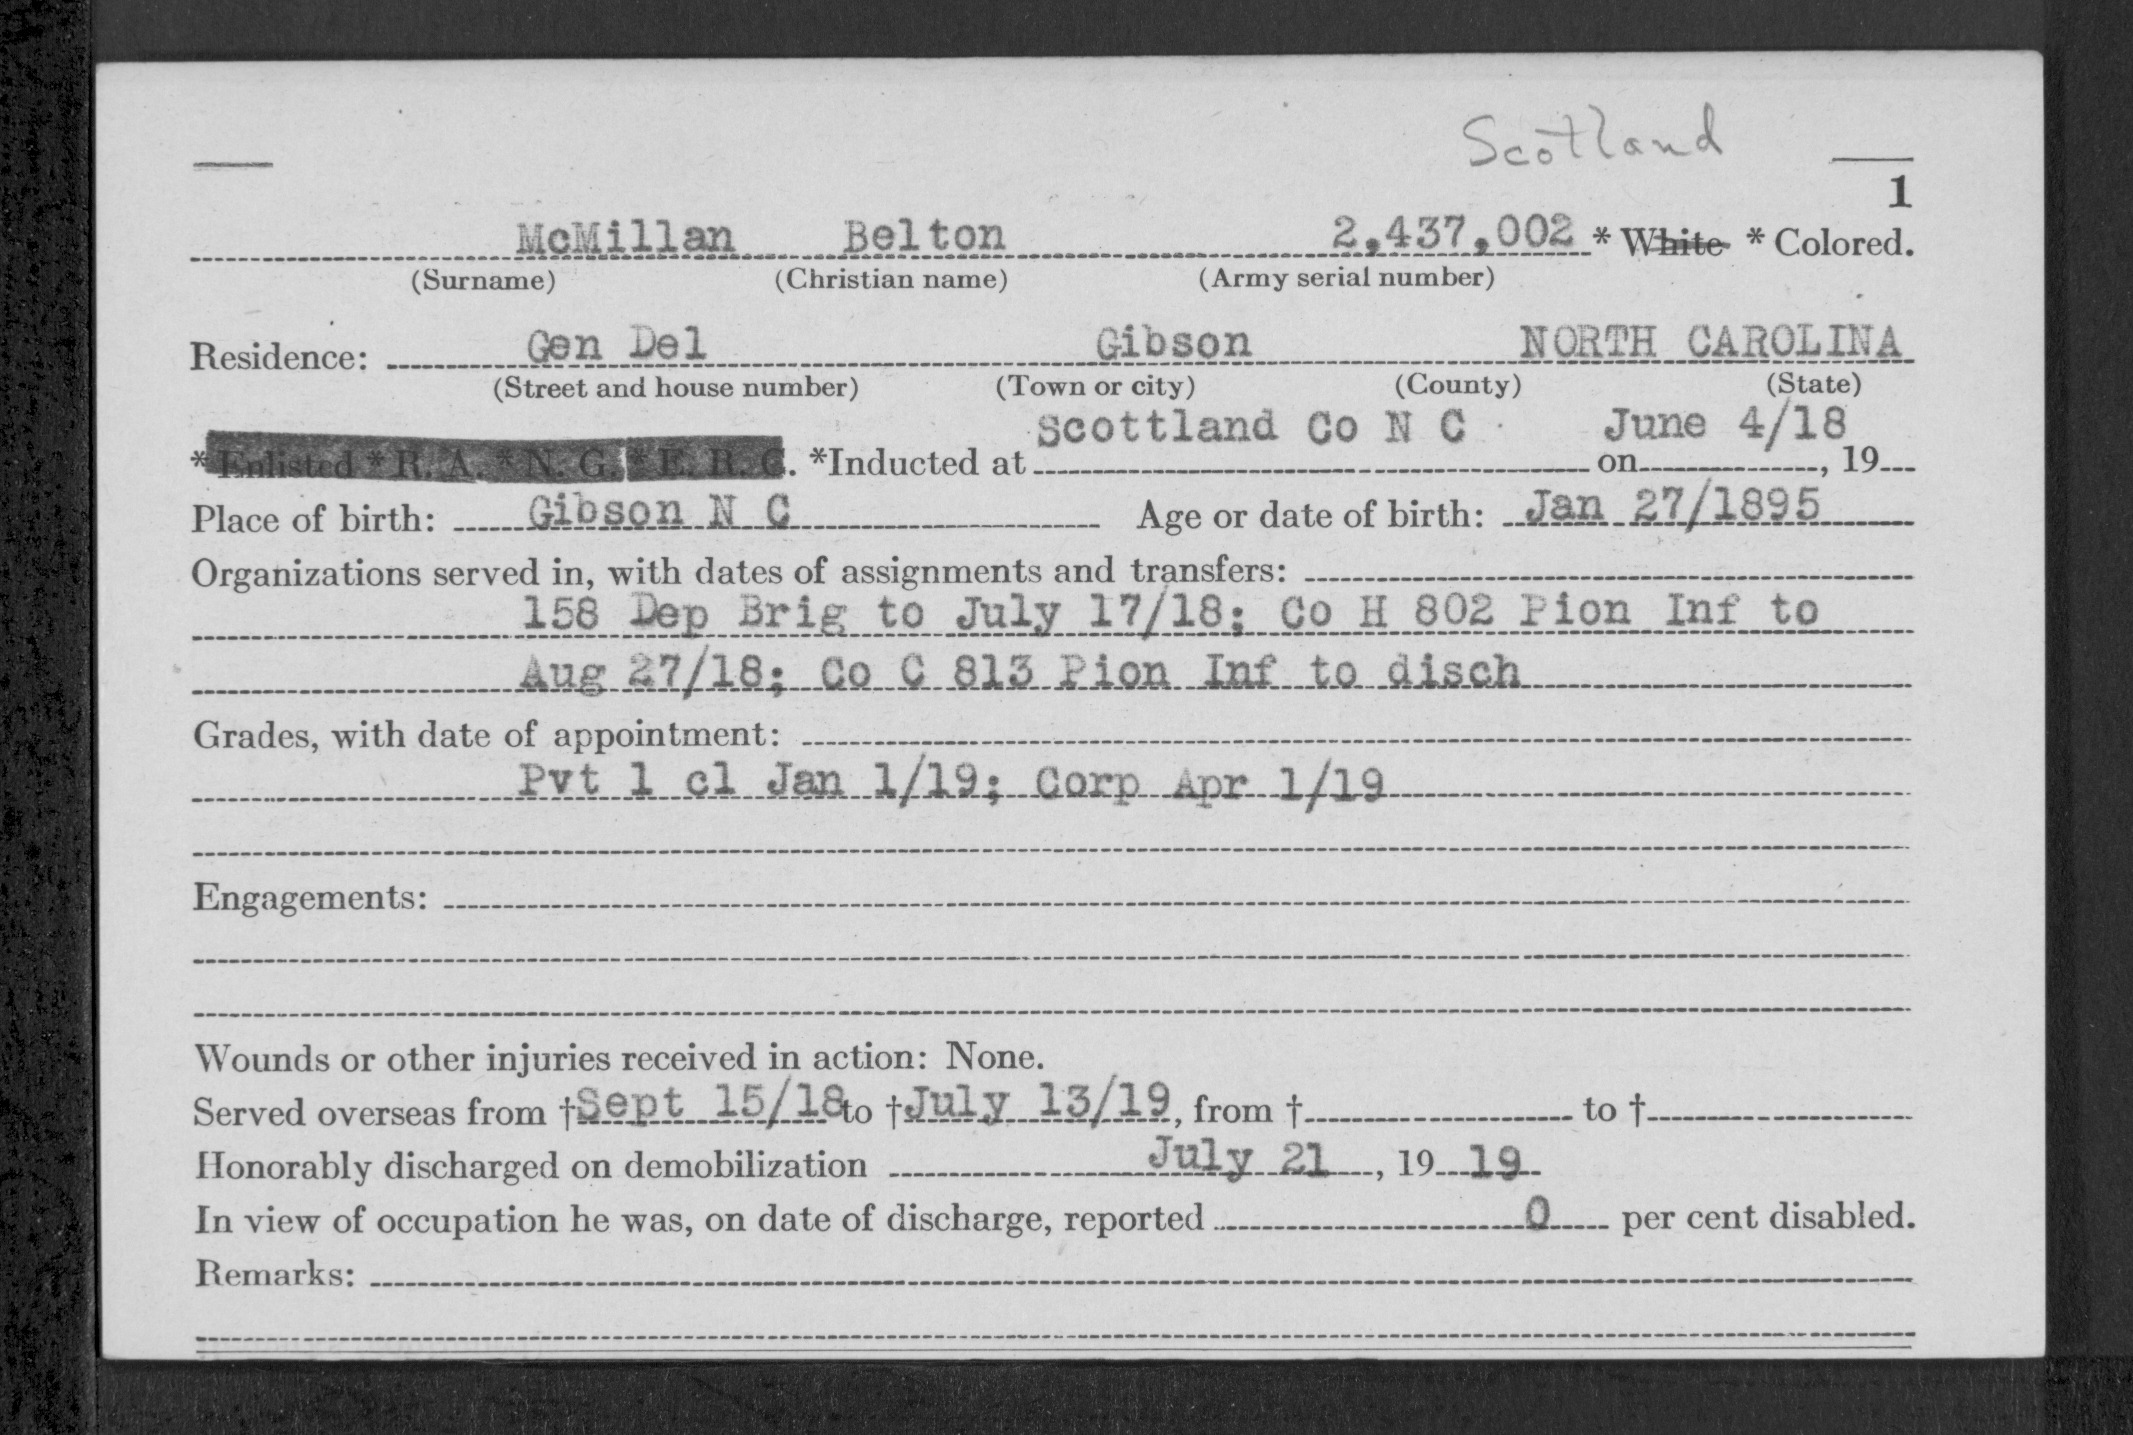 Scotland
1
McMillan Belton 2,437,002 * White * Colored.
(Surname) (Christian name) (Army serial number)
Residence: Gen Del Gibson NORTH CAROLINA
(Street and house number) (Town or city) (County) (State)
Scottland Co N C June 4/18
*Enlisted *R. A. *N. G. *E. R. C. *Inducted at on , 19
Place of birth: Gibson N C Age or date of birth: Jan 27/1895
Organizations served in, with dates of assignments and transfers:
158 Dep Brig to July 17/18; Co H 802 Pion Inf to
Aug 27/18; Co C 813 Pion Inf to disch
Grades, with date of appointment:
Pvt 1 cl Jan 1/19; Corp Apr 1/19
Engagements:
Wounds or other injuries received in action: None.
Served overseas from †Sept 15/18 to †July 13/19, from † to †
Honorably discharged on demobilization July 21, 19 19
In view of occupation he was, on date of discharge, reported 0 per cent disabled.
Remarks: